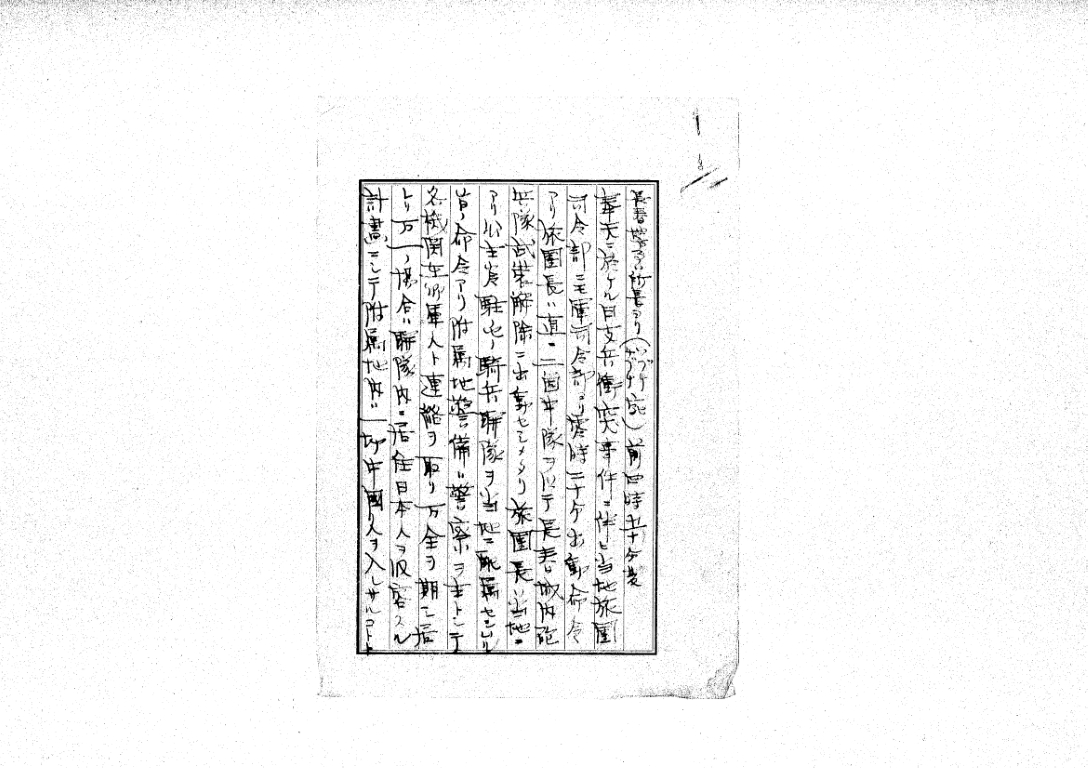 長春警察署ヨリ(ツヅケ宛)前四時五十分発
奉天ニ於ケル日支兵衝突事件ニ伴ヒ当地旅團
司令部ニモ軍司令部ヨリ零時二十分出動命令
アリ旅團長ハ直ニ二箇中隊ヲ以テ長春城内砲
兵隊武装解除ニ出動セシメタリ旅團長ハ当地ニ
アリ公主嶺駐屯ノ騎兵聯隊ヲ当地ニ配属セシムル
旨ノ命令アリ附属地警備ハ警察ヲ主トシテ
各機関在郷軍人ト連絡ヲ取リ万全ヲ期シ居
レリ万一ノ場合ハ聯隊内ニ居住日本人ヲ収容スル
計畫ニシテ附属地内ニ一切中國人ヲ入レサルコトト